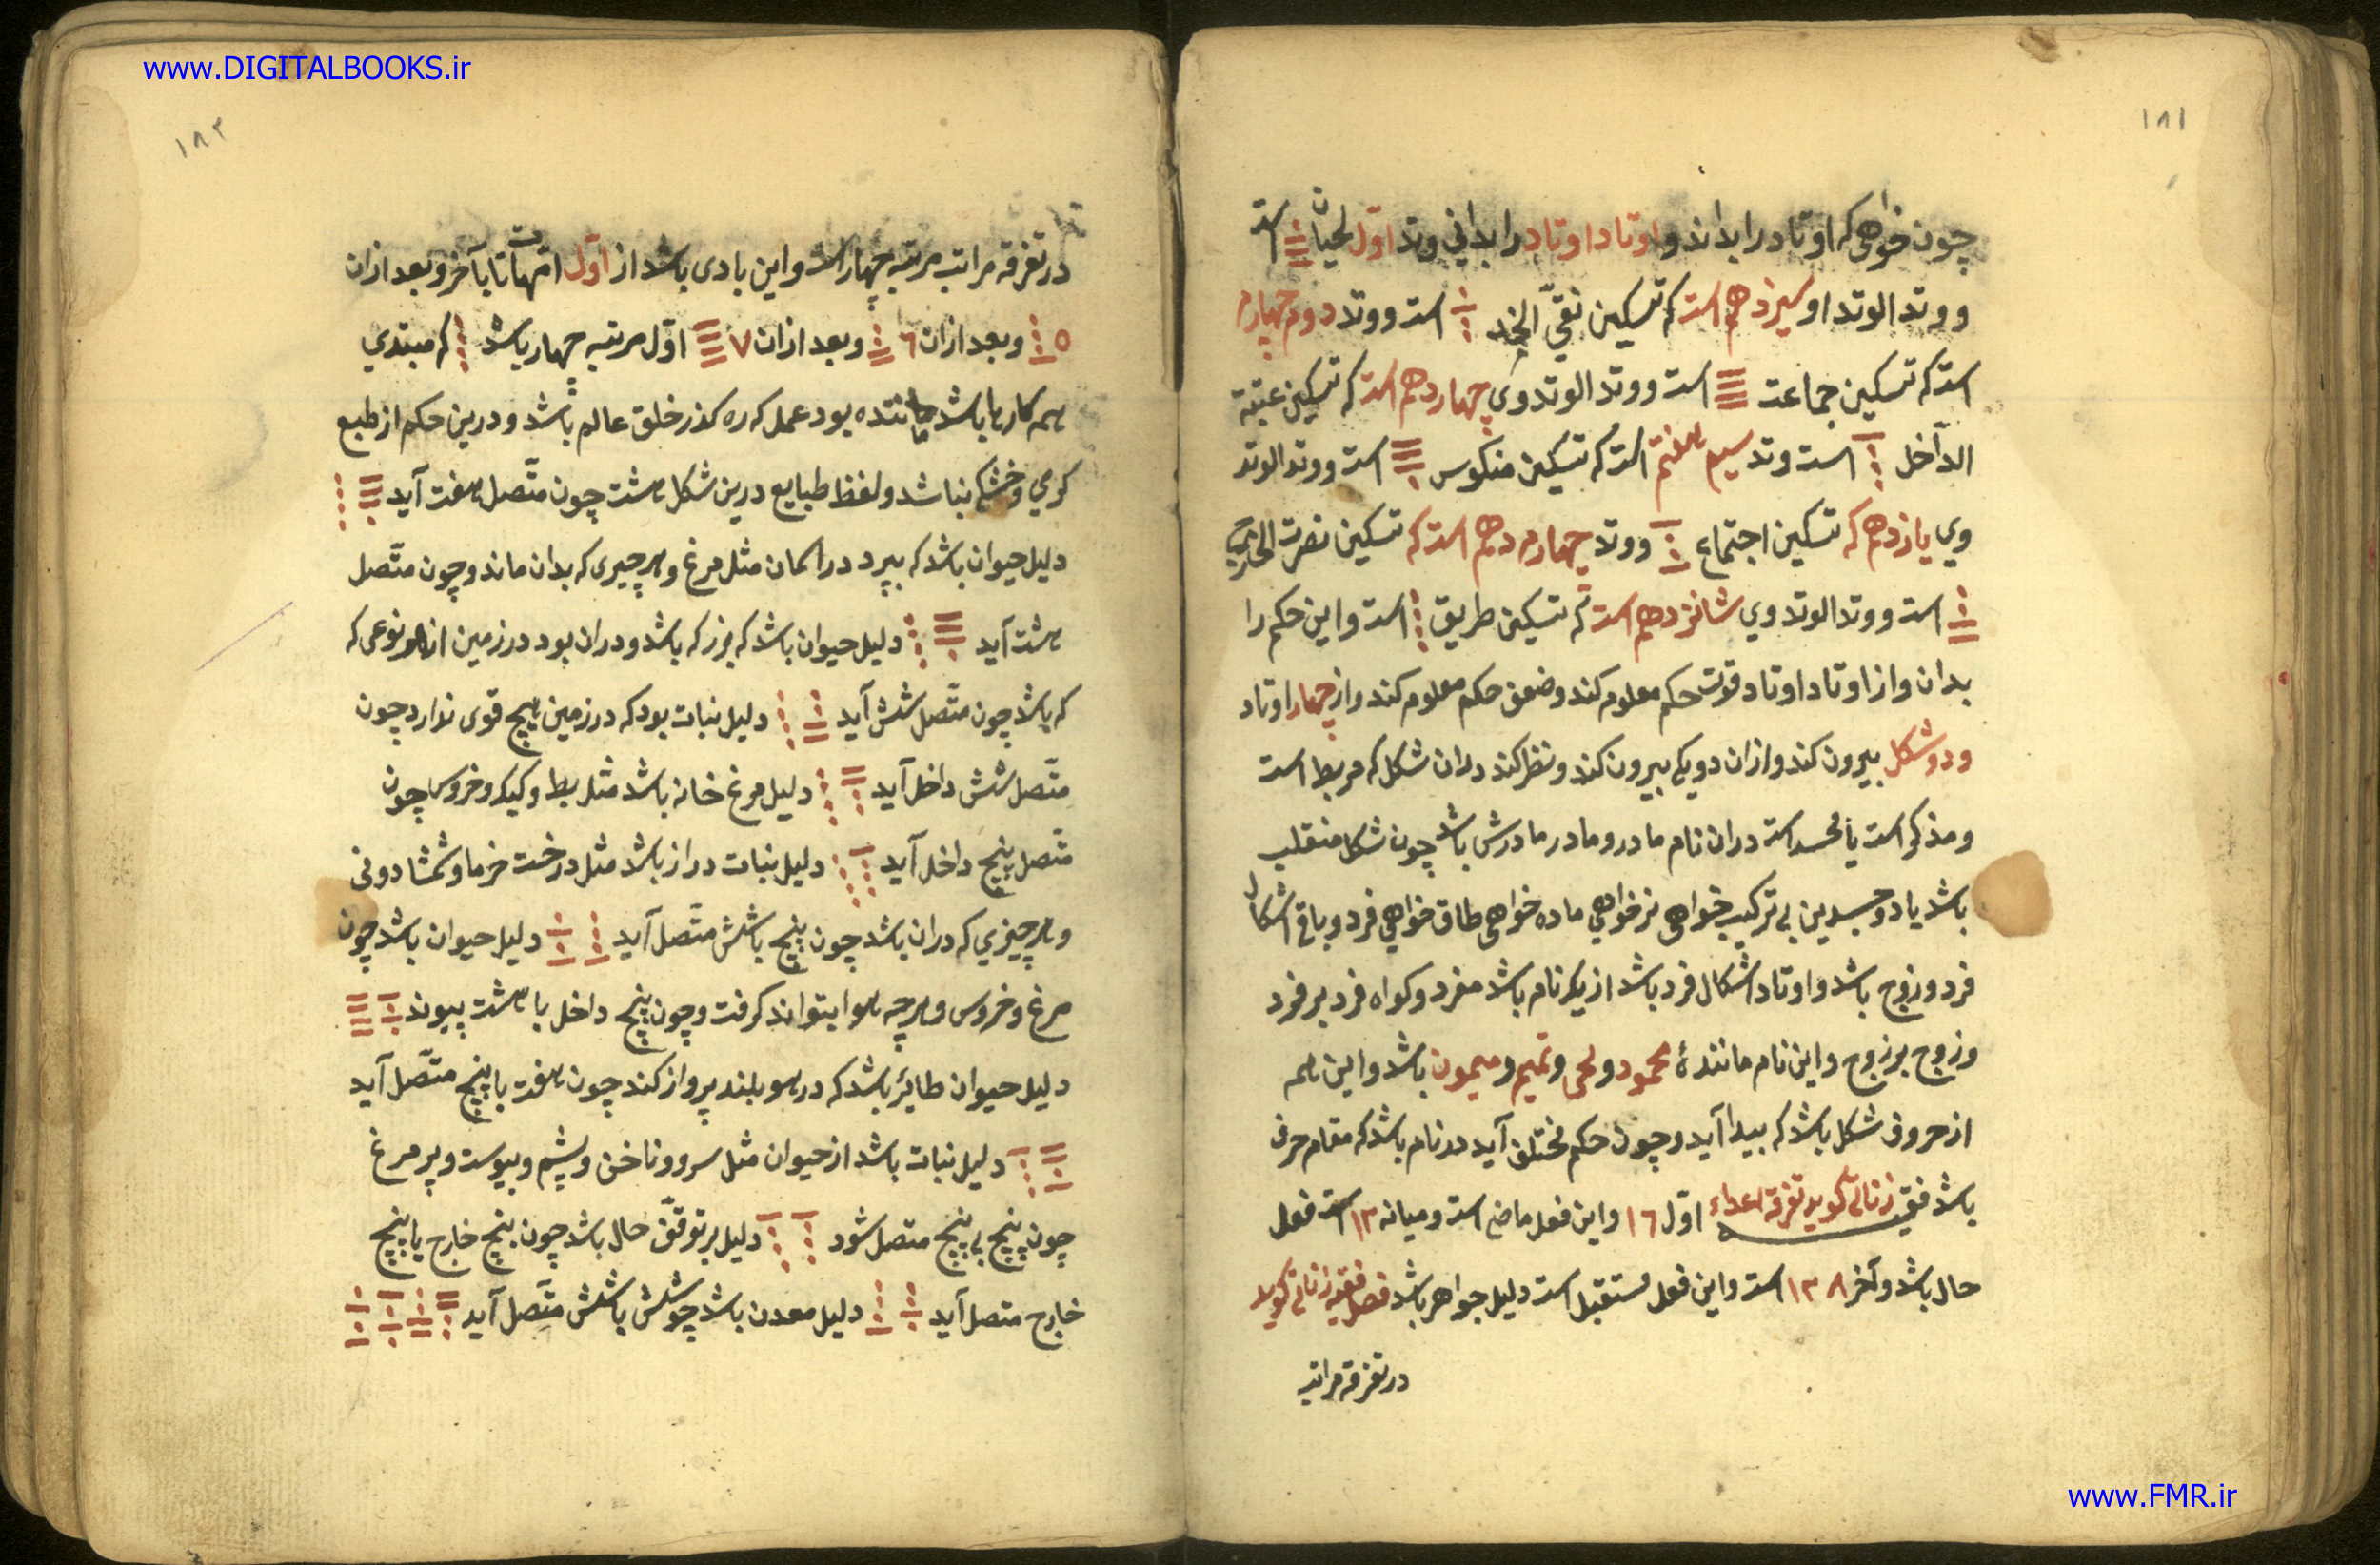 www.DIGITALBOOKS.ir
١٨١
چون خواهی که اوتاد را بداند و اوتاد اوتاد را بدانی وتد اول لحیان است
و وتد الوتد او سیزدهم است که تسکین نقی الخد است و وتد دوم چهارم
است که تسکین جماعت است و وتد الوتد وی چهاردهم است که تسکین عتبة
الداخل است وتد سیم هفتم است که تسکین منکوس است و وتد الوتد
وی یازدهم که تسکین اجتماع و وتد چهارم دهم است که تسکین نصرت الخارج
است و وتد الوتد وی شانزدهم است که تسکین طریق است و این حکم را
بدان و از اوتاد اوتاد قوت حکم معلوم کند و ضعف حکم معلوم کند و از چهار اوتاد
و دو شکل بیرون کند و از ان دو یکی بیرون کند و نظر کند دران شکل که مربط است
و مذکر است یا است دران نام مادر و مادر مادرش باشد چون شکل منقلب
باشد یا دو جسدین بی ترکیب خواهی نر خواهی ماده خواهی طاق خواهی فرد و باقی اشکال
فرد و زوج باشد و اوتاد اشکال فرد باشد از یک نام باشد مفرد و کواه فرد بر فرد
و زوج بر زوج و این نام مانندۀ محمود و یحی و تمیم و میمون باشد و این همه
از حروف شکل باشد که پیدا آید و چون حکم مختلف آید در نام باشد که مقام حرف
باشد فقیه زناتی کوید تفرقه اعداء اول ١٦ و این فعل ماضی است و میانه ١٣ است فعل
حال باشد و آخر ١٣٨ است و این فعل مستقبل است دلیل جواهر باشد فصل فقیه زناتی کوید
در تفرقه مراتب
١٨٢
در تفرقه مراتب مرتبه چهار است و این بادی باشد از اول امهات تا بآخر و بعد ازان
٥ و بعد ازان ٦ و بعد ازان ٧ اول مرتبه چهار باشد که مبتدی
همه کارها باشد ماننده بود عمل که ره کذر خلق عالم باشد و درین حکم از طبع
کرمی و خشکی نباشد و لفظ طبایع درین شکل هشت چون متصل هفت آید
دلیل حیوان باشد که بپرد در اسمان مثل مرغ و هر چیزی که بدان ماند و چون متصل
هشت آید دلیل حیوان باشد که بزرکه باشد و دران بود در زمین از هر نوعی که
که باشد چون متصل شش آید دلیل نبات بود که در زمین هیچ قوی ندارد چون
متصل شش داخل آید دلیل مرغ خانه باشد مثل بط و کیک و خروس چون
متصل پنج داخل آید دلیل نبات دراز باشد مثل درخت خرما و شمشاد و نی
و هر چیزی که دران باشد چون پنج باشش متصل آید دلیل حیوان باشد چون
مرغ و خروس و هرچه هوا بتواند کرفت و چون پنج داخل با هشت پیوند
دلیل حیوان طایر باشد که در هو بلند پرواز کند چون هفت با پنج متصل آید
دلیل نبات باشد از حیوان مثل سرو و ناخن و پشم و پوست و پر مرغ
چون پنج بی پنج متصل شود دلیل بر توقف حال باشد چون پنج خارج یا پنج
خارج متصل آید دلیل معدن باشد چو شش باشش متصل آید
www.FMR.ir